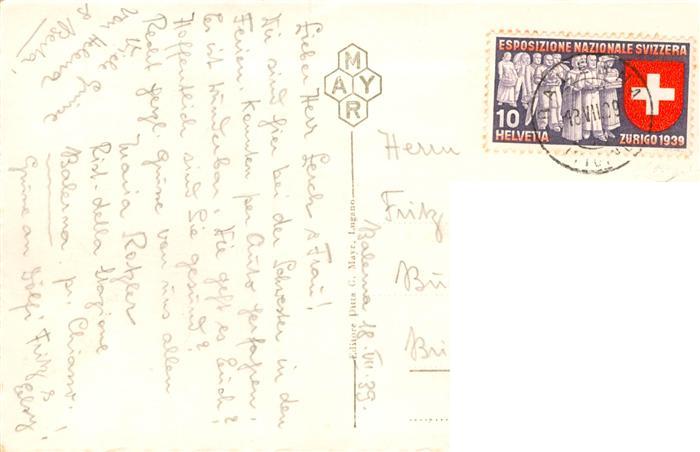 Balerna 18. VII. 39.
Lieber Herr Lerch & Frau!
Wir sind hier bei der Schwester in den
Ferien. Konnten per Auto herfahren.
Es ist wunderbar. Wie geht es Euch?
Hoffentlich sind Sie gesund?
Recht herzl. Grüsse von uns allen
Maria
Rist. della Stazione
Balerna pr. Chiasso.
Viele Grüsse
von Helena
& Berta
Grüsse an Fritz &
Editore Ditta G. Mayr, Lugano
MAYR
Herrn
Fritz
Bü
Bri
ESPOSIZIONE NAZIONALE SVIZZERA
10
HELVETIA
ZURIGO 1939